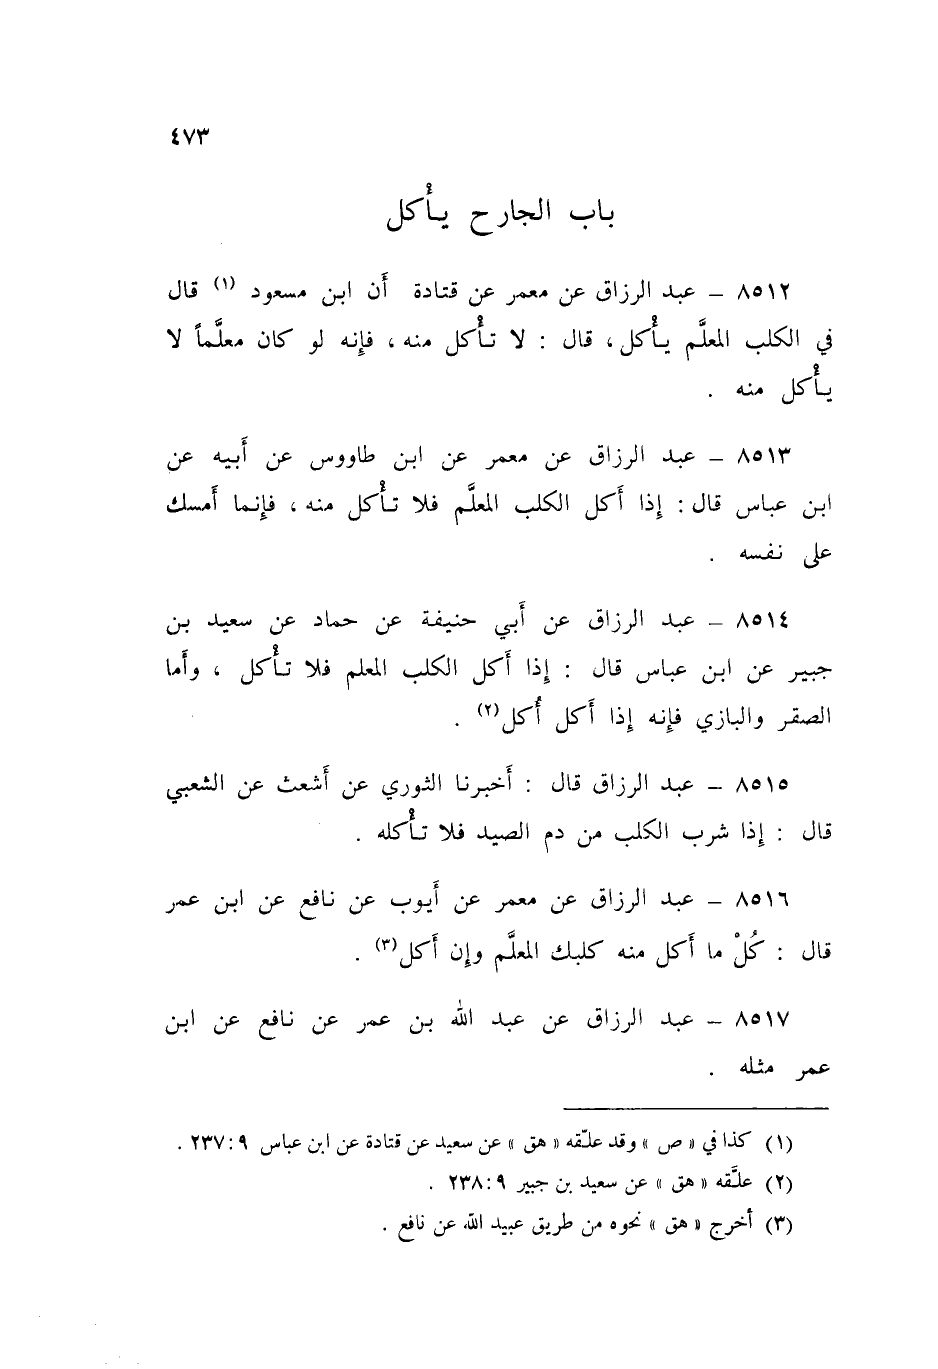 ٤٧٣
باب الجارح يأْكل
٨٥١٢ – عبد الرزاق عن معمر عن قتادة أَن ابن مسعود (١) قال
في الكلب المعلَّم يأْكل، قال : لا تأْكل منه، فإِنه لو كان معلَّماً لا
يأْكل منه .
٨٥١٣ – عبد الرزاق عن معمر عن ابن طاووس عن أَبيه عن
ابن عباس قال : إِذا أَكل الكلب المعلَّم فلا تأْكل منه، فإِنما أَمسك
على نفسه .
٨٥١٤ – عبد الرزاق عن أَبي حنيفة عن حماد عن سعيد بن
جبير عن ابن عباس قال : إِذا أَكل الكلب المعلم فلا تأْكل ، وأَما
الصقر والبازي فإِنه إِذا أَكل أُكل(٢) .
٨٥١٥ – عبد الرزاق قال : أَخبرنا الثوري عن أَشعث عن الشعبي
قال : إِذا شرب الكلب من دم الصيد فلا تأْكله .
٨٥١٦ – عبد الرزاق عن معمر عن أَيوب عن نافع عن ابن عمر
قال : كُلْ ما أَكل منه كلبك المعلَّم وإِن أَكل(٣) .
٨٥١٧ – عبد الرزاق عن عبد الله بن عمر عن نافع عن ابن
عمر مثله .
(١) كذا في « ص » وقد علّقه « هق » عن سعيد عن قتادة عن ابن عباس ٩ : ٢٣٧ .
(٢) علَّقه « هق » عن سعيد بن جبير ٩ : ٢٣٨ .
(٣) أخرج « هق » نحوه من طريق عبيد الله عن نافع .